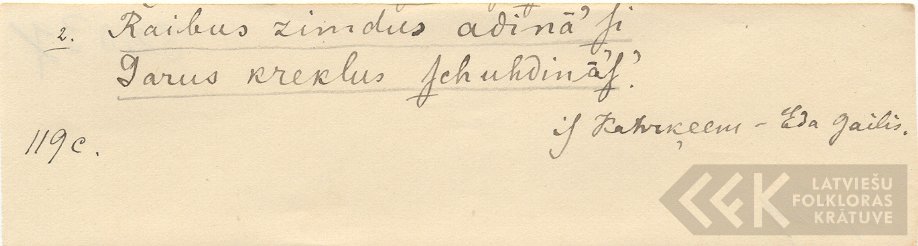 2. Raibus zimdus adinā'ſi
Garus kreklus ſchuhdinā'ſ'.
iſ Katrķeem – Eda Gailis.
119c.
LATVIEŠU
FOLKLORAS
KRĀTUVE